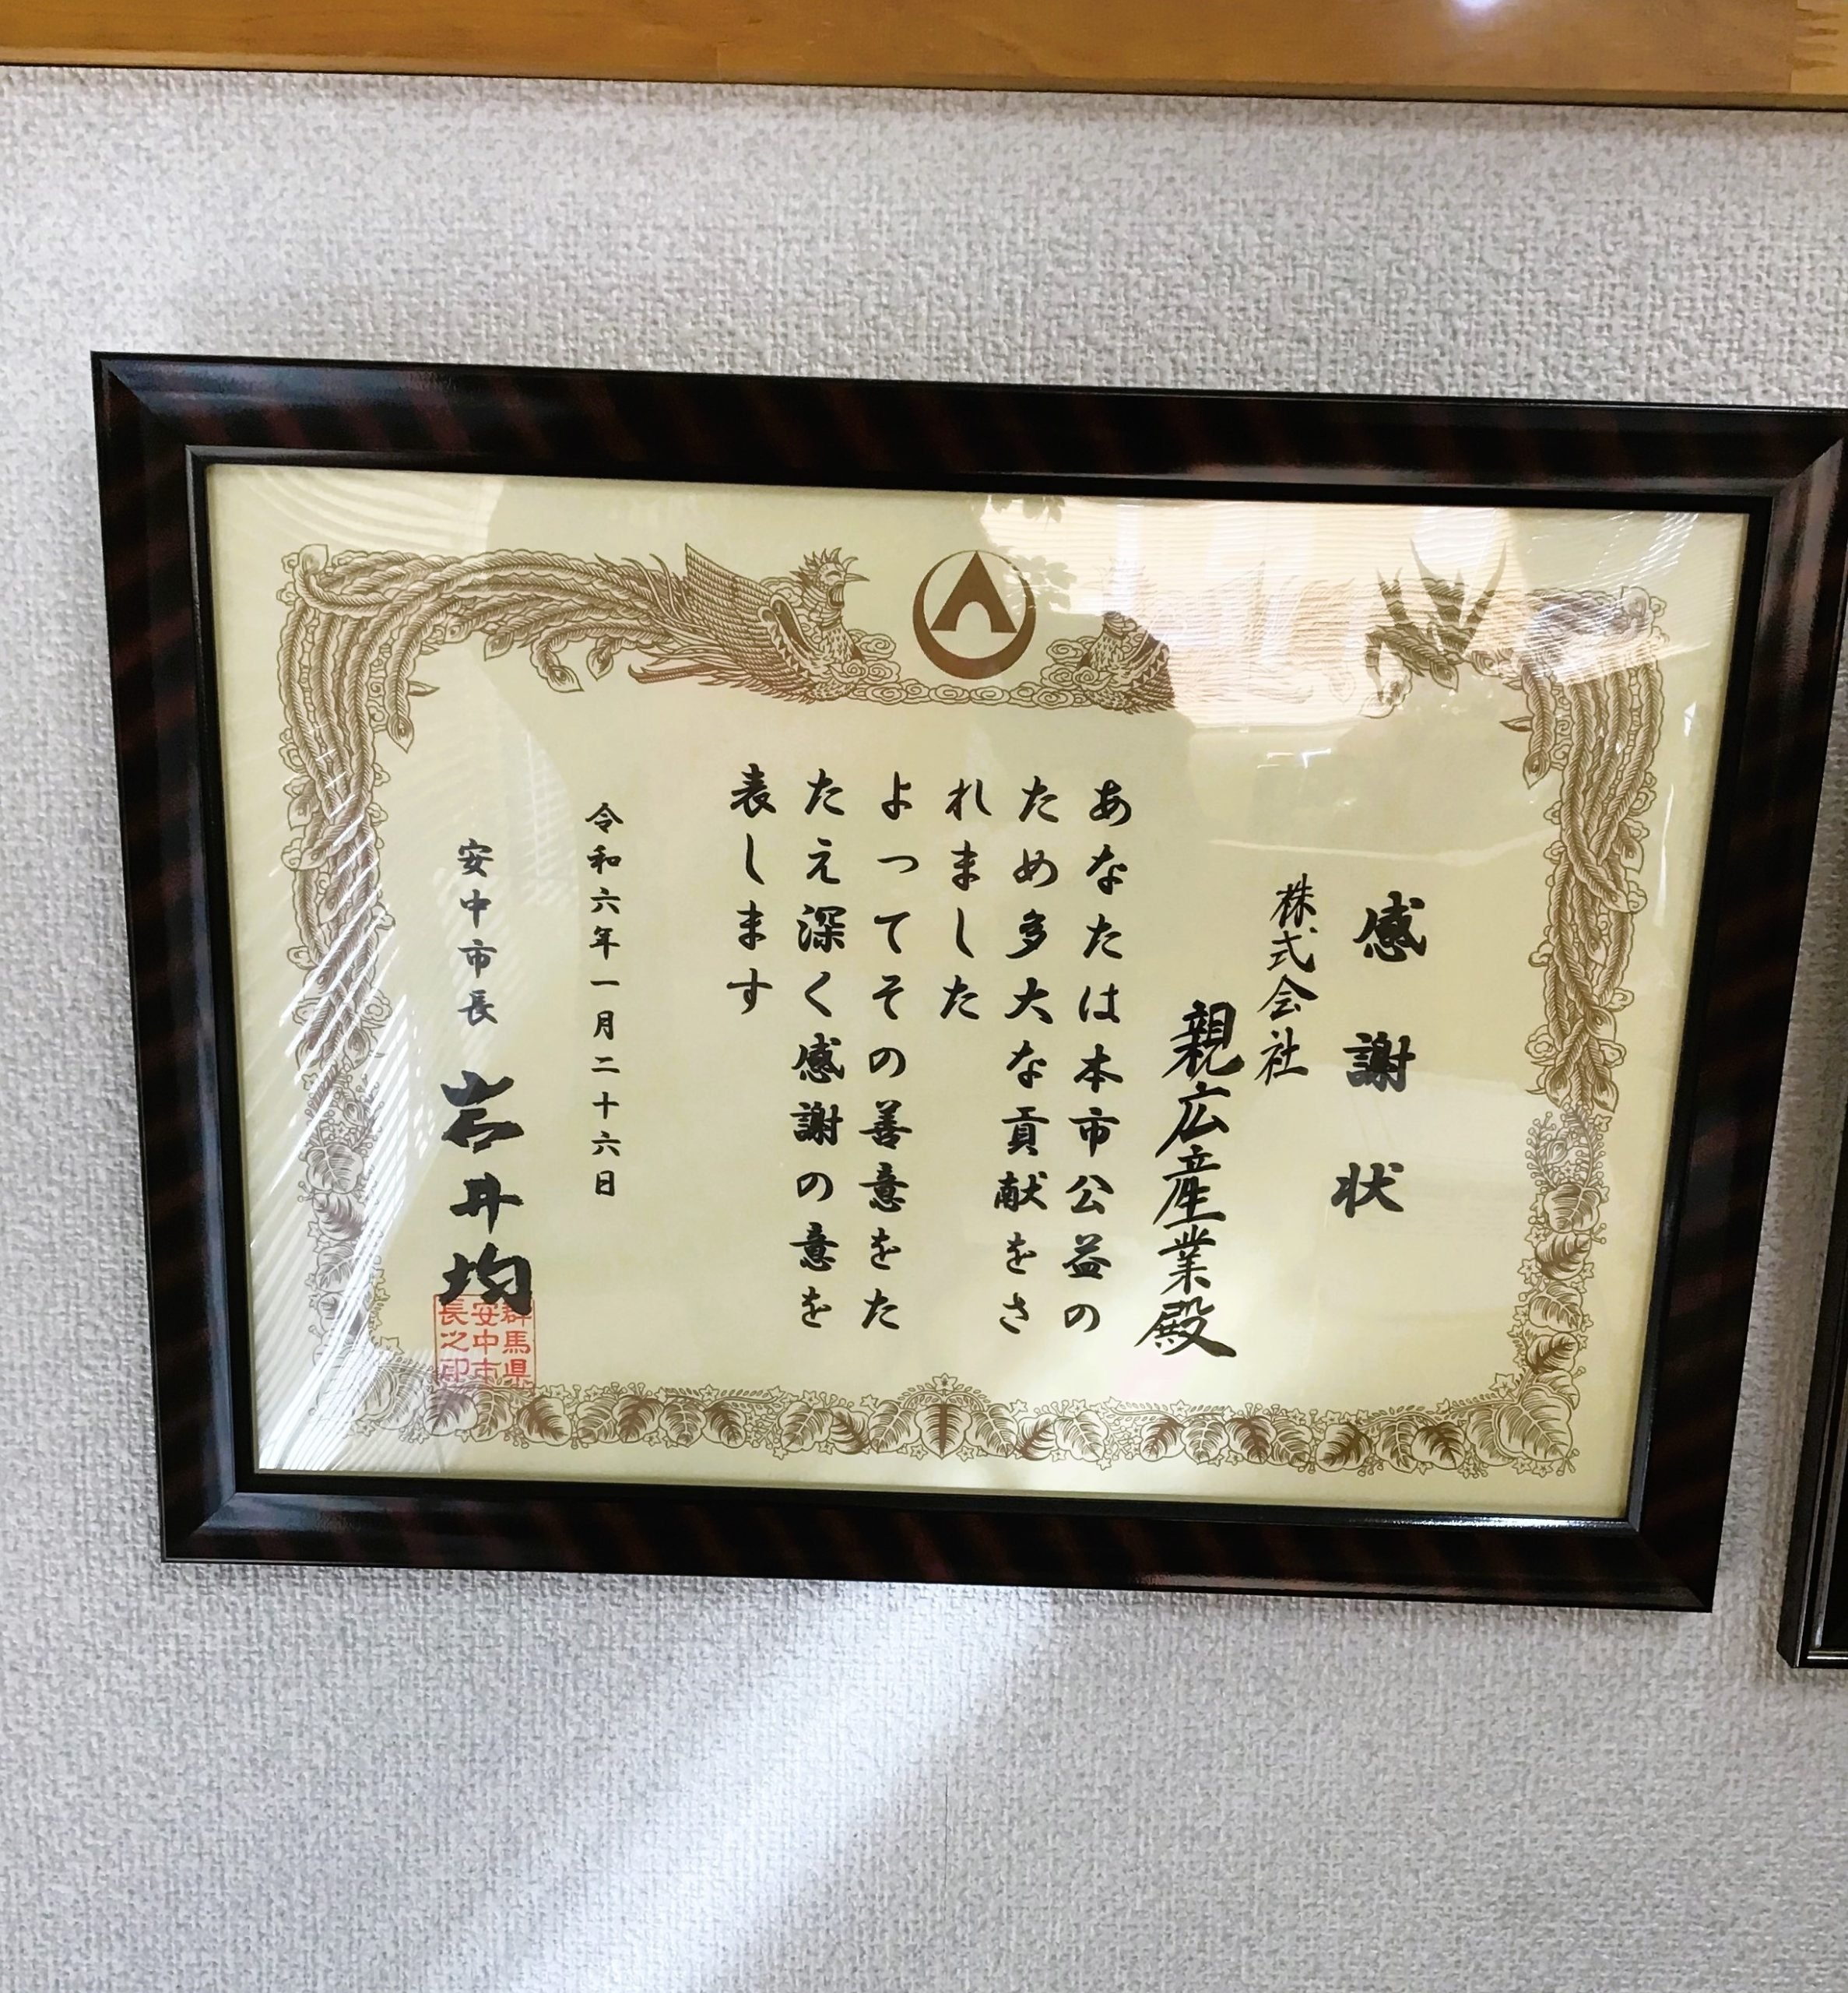 感謝状
株式会社
親広産業殿
あなたは本市公益の
ため多大な貢献をさ
れました
よってその善意をた
たえ深く感謝の意を
表します
令和六年一月二十六日
安中市長 岩井均
群馬県
安中市
長之印